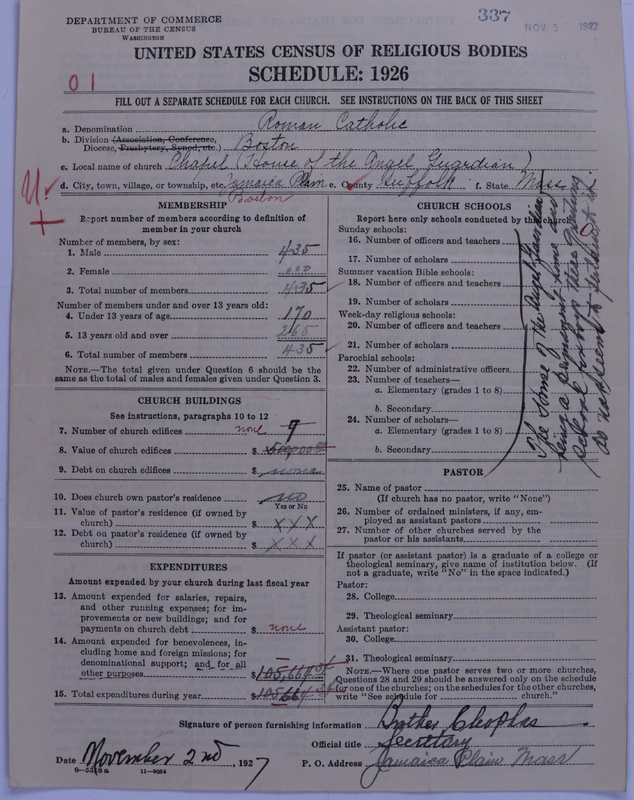 DEPARTMENT OF COMMERCE
BUREAU OF THE CENSUS
WASHINGTON
337
NOV 5 1927
UNITED STATES CENSUS OF RELIGIOUS BODIES
SCHEDULE: 1926
0 1
FILL OUT A SEPARATE SCHEDULE FOR EACH CHURCH. SEE INSTRUCTIONS ON THE BACK OF THIS SHEET
a. Denomination Roman Catholic
b. Division (Association, Conference, Diocese, Presbytery, Synod, etc.) Boston
c. Local name of church Chapel (House of the Angel Guardian)
d. City, town, village, or township, etc. Jamaica Plain e. County Suffolk f. State Mass
Boston
MEMBERSHIP
Report number of members according to definition of
member in your church
Number of members, by sex:
1. Male 435
2. Female
3. Total number of members 435
Number of members under and over 13 years old:
4. Under 13 years of age 170
5. 13 years old and over 265
6. Total number of members 435
NOTE.—The total given under Question 6 should be
same as the total of males and females given under Question 3.
CHURCH BUILDINGS
See instructions, paragraphs 10 to 12
7. Number of church edifices none
8. Value of church edifices $
9. Debt on church edifices $ none
10. Does church own pastor's residence no
Yes or No
11. Value of pastor's residence (if owned by
church) $ X X X
12. Debt on pastor's residence (if owned by
church) $ X X X
EXPENDITURES
Amount expended by your church during last fiscal year
13. Amount expended for salaries, repairs,
and other running expenses; for im-
provements or new buildings; and for
payments on church debt $ none
14. Amount expended for benevolences, in-
cluding home and foreign missions; for
denominational support; and for all
other purposes $ 105,664.36
15. Total expenditures during year $ 105,664.36
CHURCH SCHOOLS
Report here only schools conducted by this church
Sunday schools:
16. Number of officers and teachers
17. Number of scholars
Summer vacation Bible schools:
18. Number of officers and teachers
19. Number of scholars
Week-day religious schools:
20. Number of officers and teachers
21. Number of scholars
Parochial schools:
22. Number of administrative officers
23. Number of teachers—
a. Elementary (grades 1 to 8)
b. Secondary
24. Number of scholars—
a. Elementary (grades 1 to 8)
b. Secondary
The House of the Angel Guardian
being a home and
school for boys these questions
do not seem to pertain to it
PASTOR
25. Name of pastor
(If church has no pastor, write "None")
26. Number of ordained ministers, if any, em-
ployed as assistant pastors
27. Number of other churches served by the
pastor or his assistants
If pastor (or assistant pastor) is a graduate of a college or
theological seminary, give name of institution below. (If
not a graduate, write "No" in the space indicated.)
Pastor:
28. College
29. Theological seminary
Assistant pastor:
30. College
31. Theological seminary
NOTE.—Where one pastor serves two or more churches,
Questions 28 and 29 should be answered only on the schedule
for one of the churches; on the schedules for the other churches,
write "See schedule for church."
Signature of person furnishing information Brother Cleophas
Official title Secretary
Date November 2nd, 1927 P. O. Address Jamaica Plain Mass
11—9324